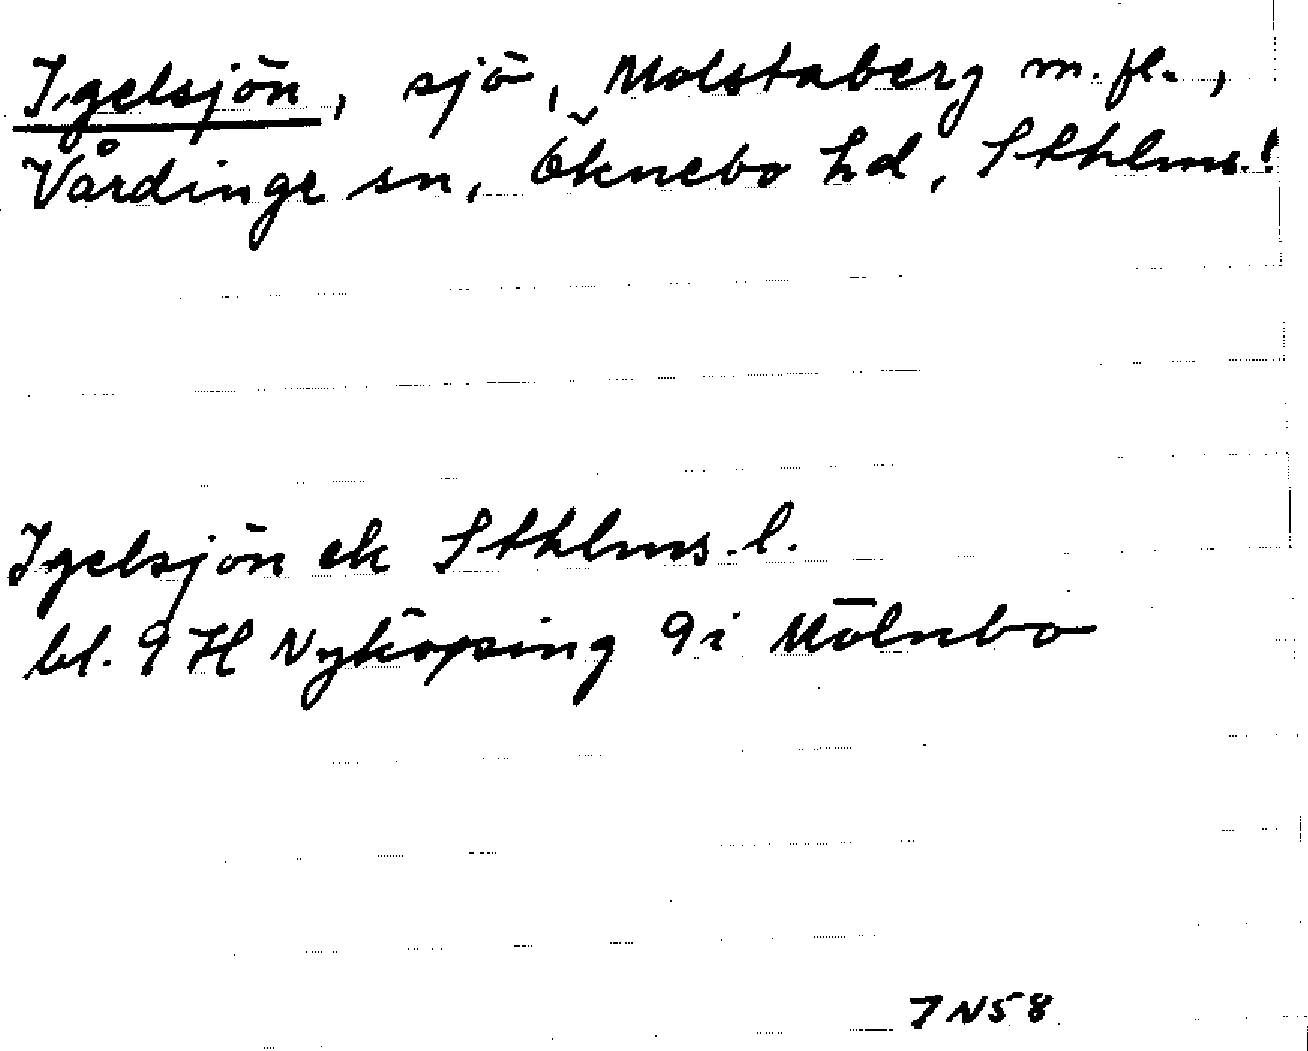 Igelsjön, sjö, Molstaberg m.fl.,
Vårdinge sn, Öknebo hd, Sthlms.l
Igelsjön ek Sthlms.l.
bl. 9 H Nyköping 9i Mölnbo
7N58